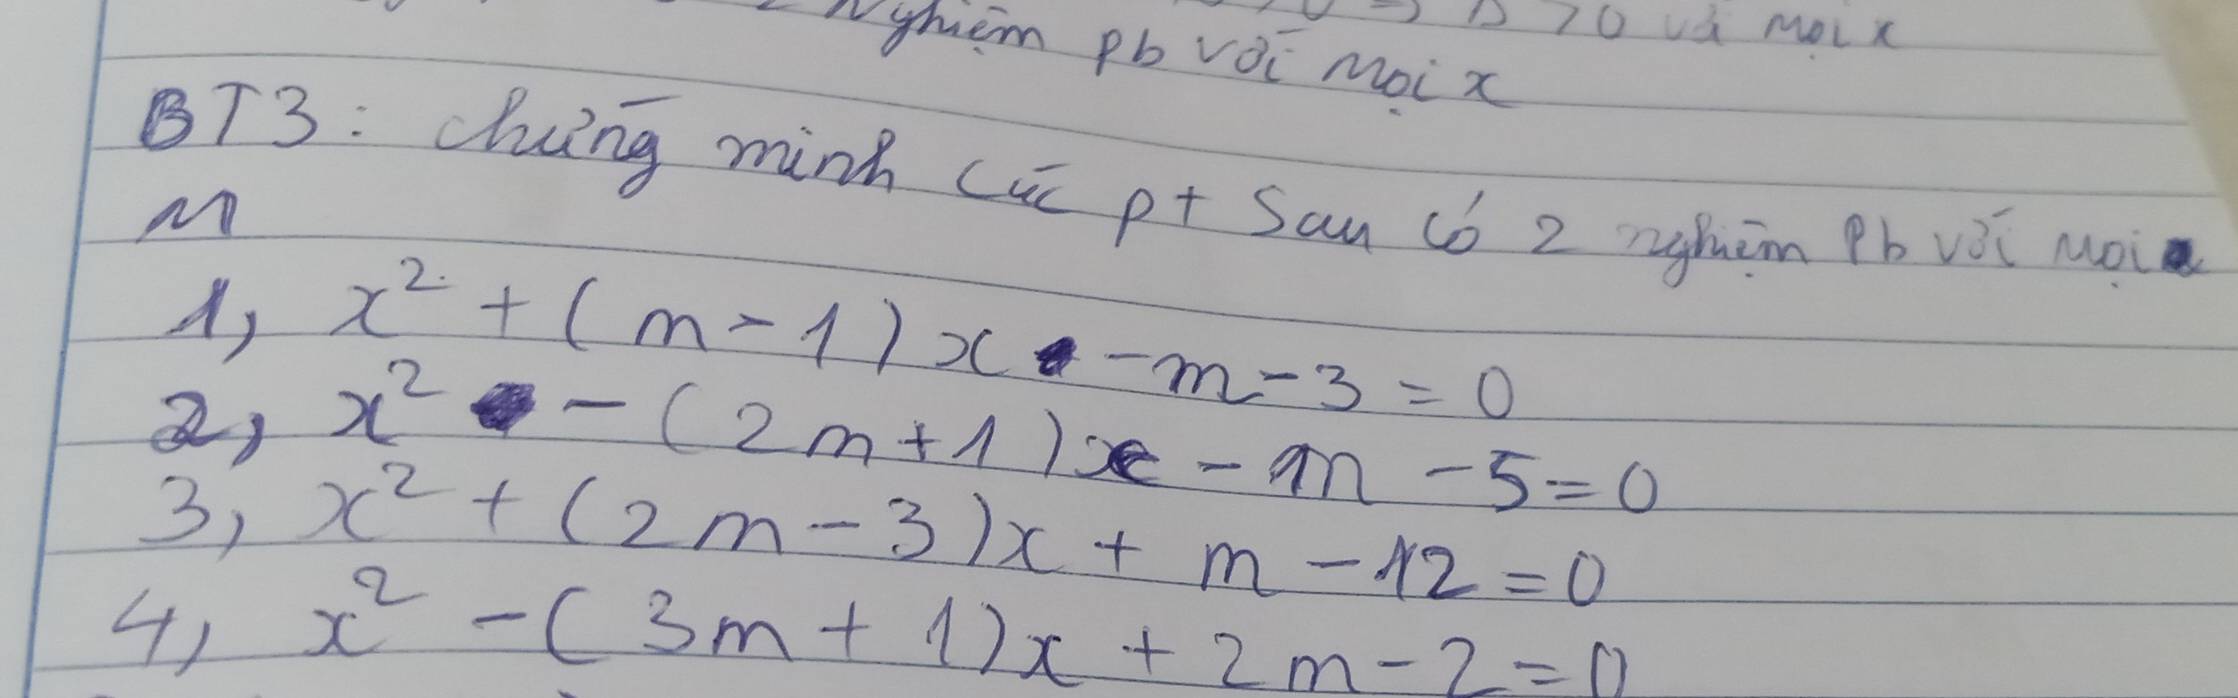 nghiệm pb với mọi x
BT3: chứng minh các pt sau có 2 nghiệm Pb với mọi
M
1, x² + (m-1)x -m-3=0
2, x² - (2m+1)x - m -5=0
3, x² + (2m-3)x + m -12=0
4, x² -(3m+1)x + 2m-2=0